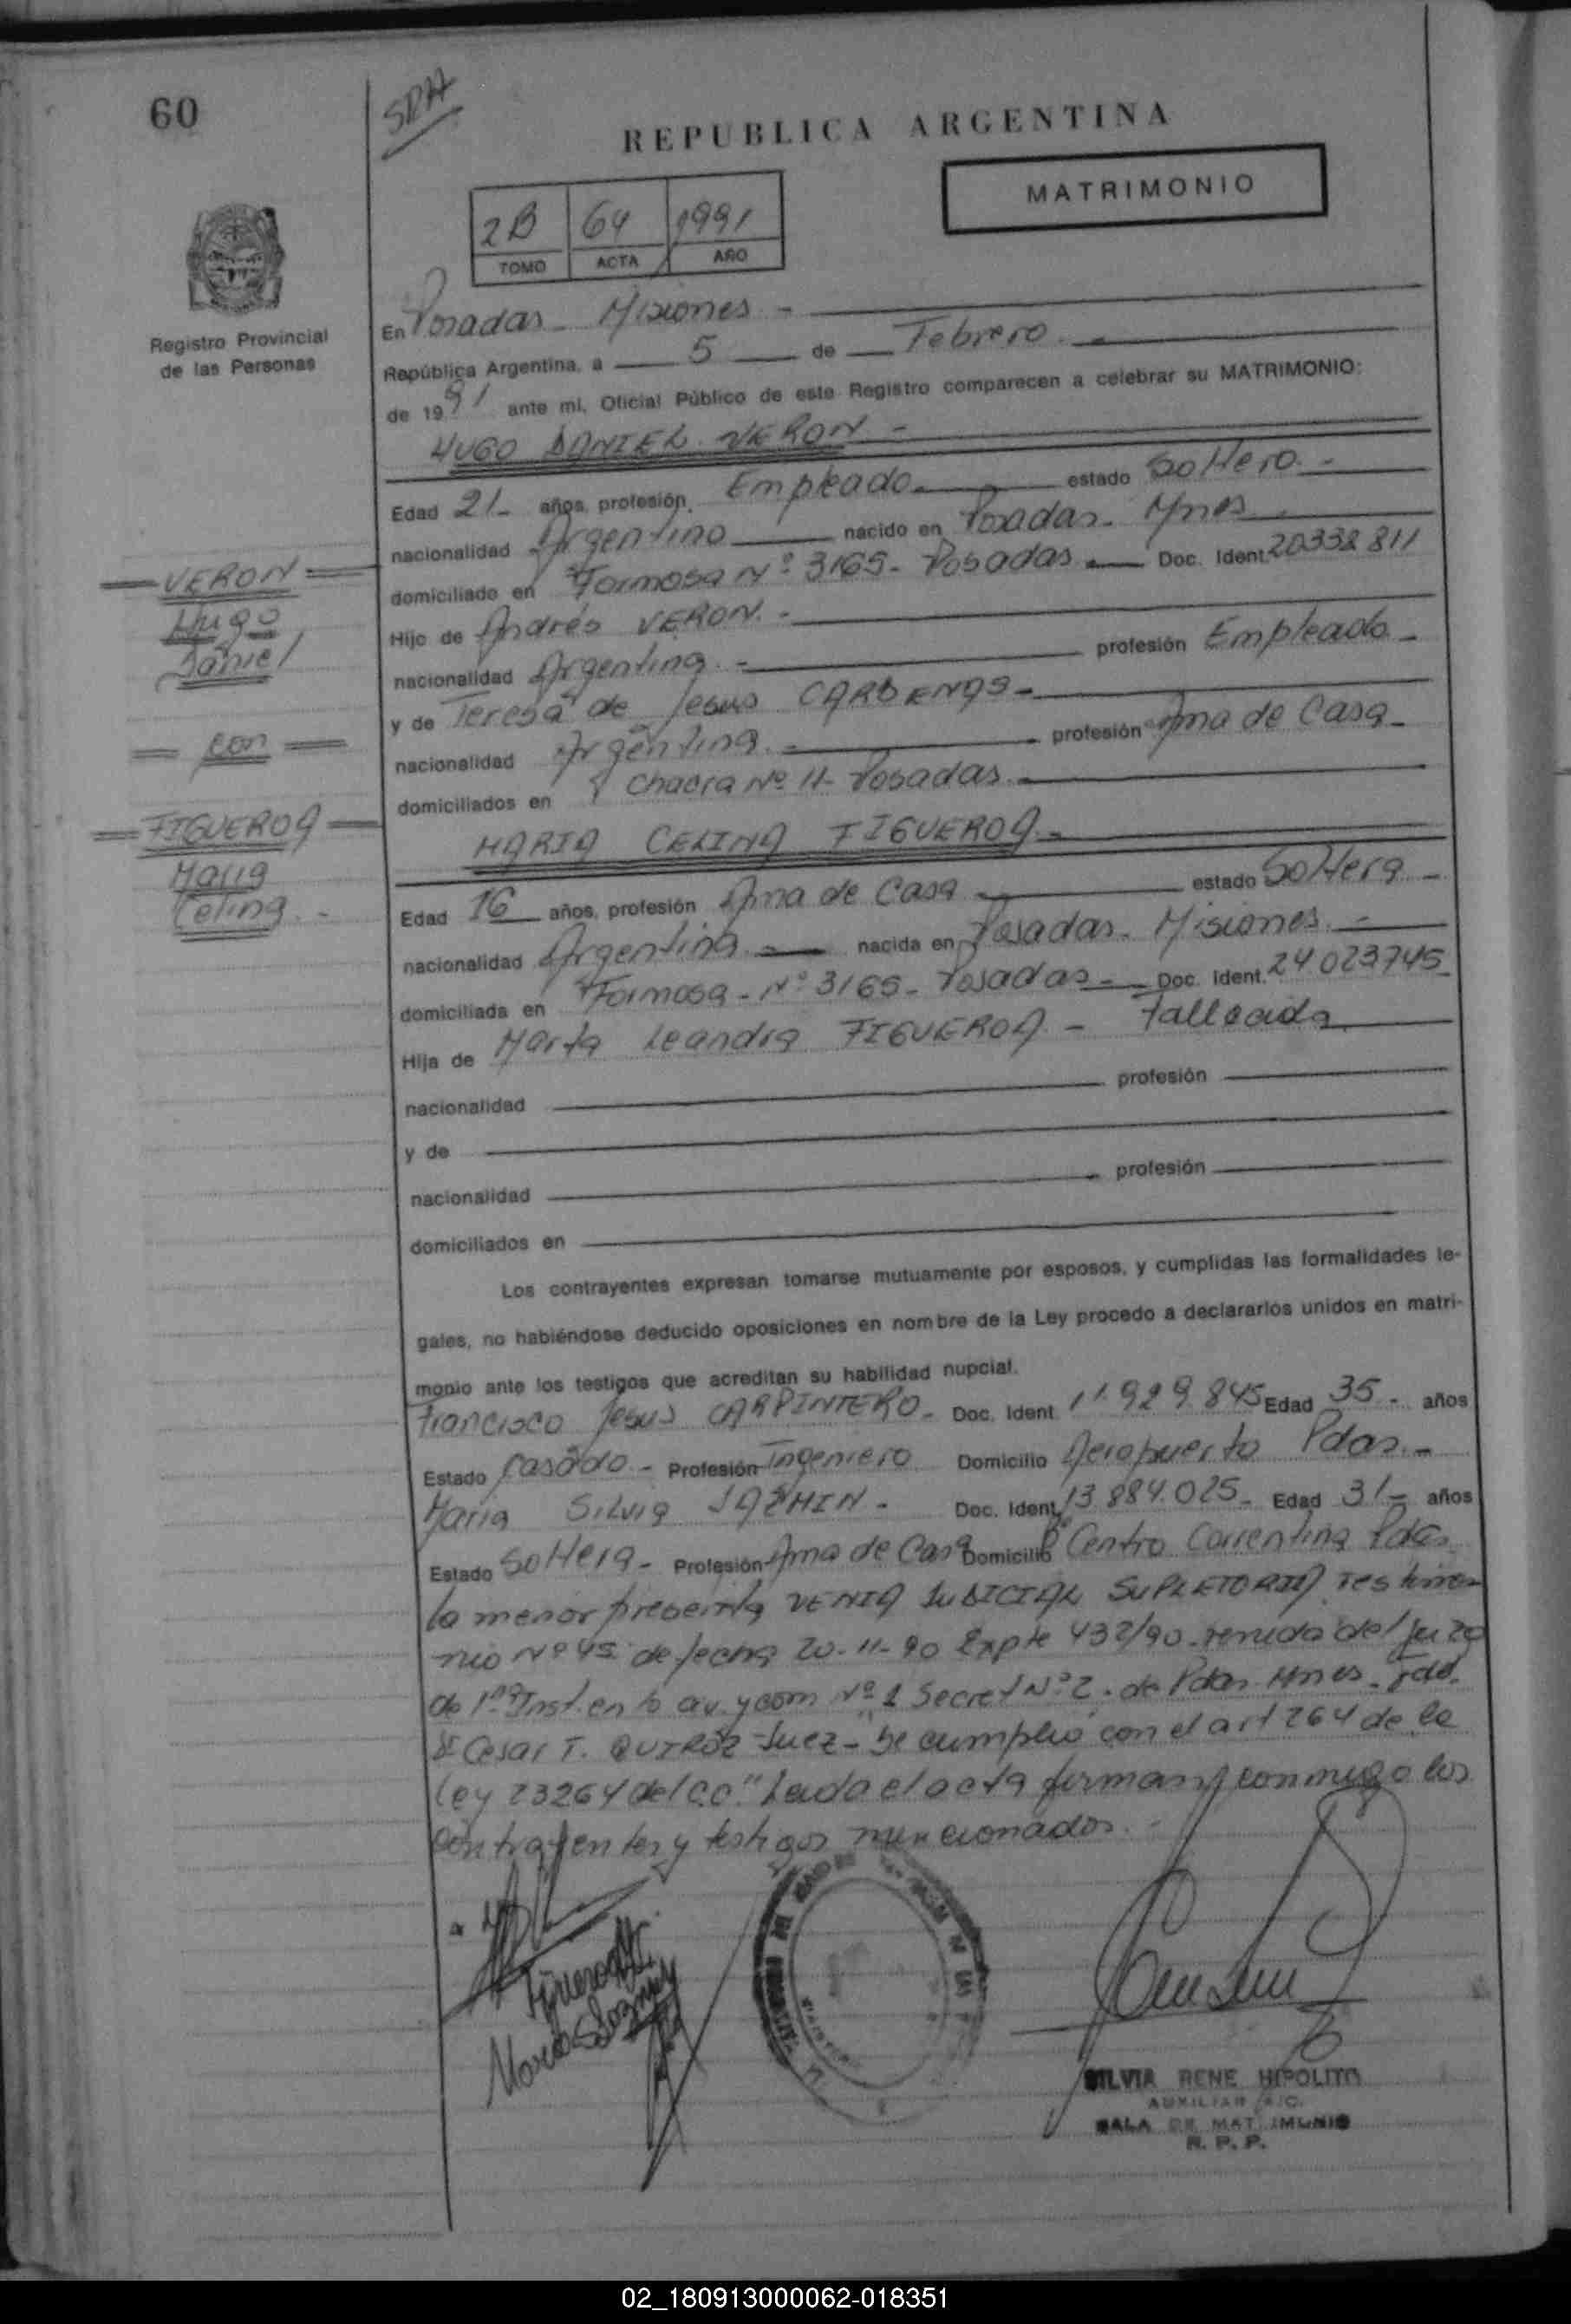 60
SRA
REPUBLICA ARGENTINA
MATRIMONIO
2B 64 1991
TOMO ACTA AÑO
Registro Provincial
de las Personas
En Posadas - Misiones -
República Argentina, a 5 de Febrero -
de 1991 ante mi, Oficial Público de este Registro comparecen a celebrar su MATRIMONIO:
HUGO DANIEL VERON -
Edad 21 - años, profesión Empleado - estado Soltero -
nacionalidad Argentino nacido en Posadas - Mnes
domiciliado en Formosa Nº 3165 - Posadas - Doc. Ident. 20338811
Hijo de Andrés VERON. -
nacionalidad Argentina - profesión Empleado -
y de Teresa de Jesus CARDENAS -
nacionalidad Argentina - profesión Ama de Casa -
domiciliados en Chacra Nº 11 - Posadas -
MARIA CELINA FIGUEROA -
Edad 16 años, profesión Ama de Casa - estado Soltera -
nacionalidad Argentina - nacida en Posadas - Misiones -
domiciliada en Formosa - Nº 3165 - Posadas - Doc. Ident. 24023745
Hija de Marta Leandra FIGUEROA - Fallecida
nacionalidad profesión
y de
nacionalidad profesión
domiciliados en
VERON
Hugo
Daniel
con
FIGUEROA
Maria
Celina -
Los contrayentes expresan tomarse mutuamente por esposos, y cumplidas las formalidades le-
gales, no habiéndose deducido oposiciones en nombre de la Ley procedo a declararlos unidos en matri-
monio ante los testigos que acreditan su habilidad nupcial.
Francisco Jesus CARPINTERO - Doc. Ident. 11 929.845 Edad 35 - años
Estado Casado - Profesión Ingeniero Domicilio Aeropuerto Pdas. -
Maria Silvia JAZMIN - Doc. Ident. 13 884.025 - Edad 31 - años
Estado Soltera - Profesión Ama de Casa Domicilio Bº Centro Correntina Pdas
la menor presenta VENIA JUDICIAL SUPLETORIA, Testimo
nio Nº 45 de fecha 20-11-90 Expte 432/90 - venida del Juzg
de 1ra Inst. en lo civ. y com Nº 1 Secret Nº 2. de Pdas Mnes. Fdo.
Dr Cesar T. QUIROZ - Juez - "Se cumplió con el art 264 de la
ley 23264 del C.C." Leida el acta firman conmigo los
contrayentes y testigos mencionados. -
Figueroa
Maria S Jazmin
SILVIA RENE HIPOLITO
AUXILIAR A/C.
SALA DE MATRIMONIO
R. P. P.
02_180913000062-018351